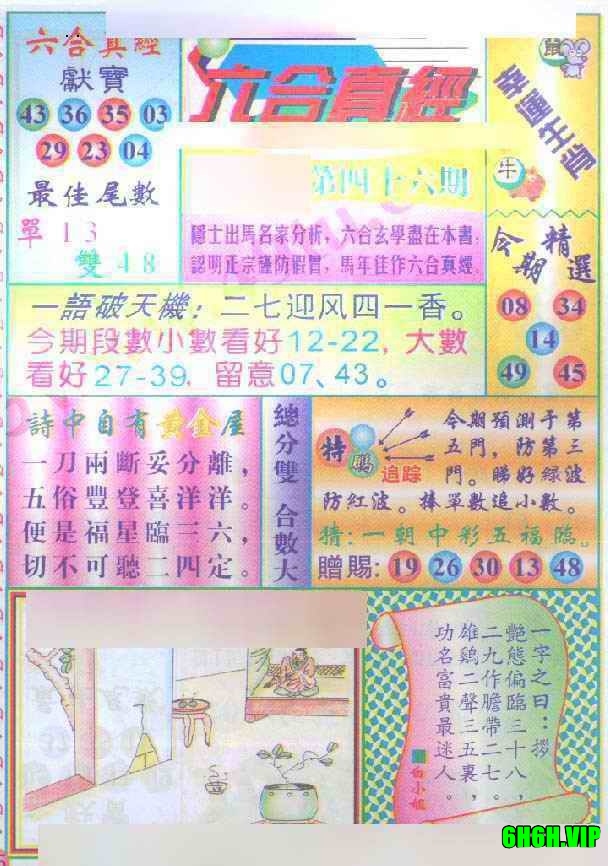 六合真經
獻寶
43 36 35 03
29 23 04
最佳尾數
單13
雙48
六合真經
第四十六期
隱士出馬名家分析，六合玄學盡在本書；
認明正宗謹防假冒，馬年佳作六合真經。
鼠
幸運生肖
牛
今期精選
08 34
14
49 45
一語破天機：二七迎风四一香。
今期段數小數看好12-22，大數
看好27-39，留意07、43。
詩中自有黃金屋
一刀兩斷妥分離，
五俗豐登喜洋洋。
便是福星臨三六，
切不可聽二四定。
總分雙 合數大
特碼
追踪
今期預測于第
五門，防第三
門。睇好綠波
防紅波。捧單數追小數。
猜：一朝中彩五福臨。
贈賜：19 26 30 13 48
一字之曰：拶
艷態偏臨三十八，
二九作膽帶二七。
雄鷄二聲三五裏，
功名富貴最迷人。
白小姐
6H6H.VIP